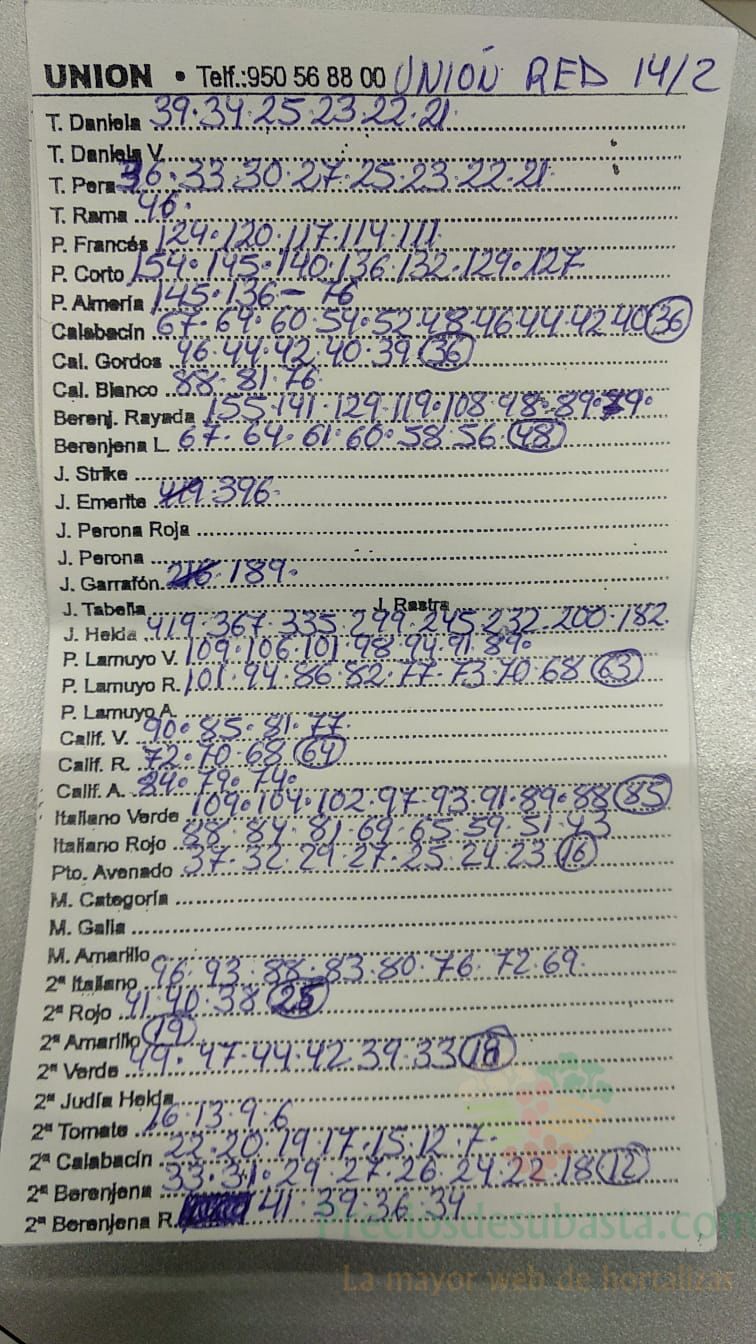 UNION • Telf.:950 56 88 00 UNIÓN RED 14/2
T. Daniela 39·34·25·23·22·21·
T. Daniela V.
T. Pera 36·33·30·27·25·23·22·21·
T. Rama 46·
P. Francés 124·120·117·114·111
P. Corto 154·145·140·136·132·129·127
P. Almería 145·136 – 76
Calabacín 67·64·60·54·52·48·46·44·42·40 36
Cal. Gordos 46·44·42·40·39 36
Cal. Blanco 88·81·76·
Berenj. Rayada 155·141·129·119·108·98·89·79·
Berenjena L. 67·64·61·60·58·56·48
J. Strike
J. Emerite 419 396·
J. Perona Roja
J. Perona
J. Garrafón 216 189·
J. Tabella J. Rastra
J. Helda 419·367·335·299·245·232·200·182·
P. Lamuyo V. 109·106·101·98·94·91·89·
P. Lamuyo R. 101·94·86·82·77·73·70·68 63
P. Lamuyo A.
Calif. V. 90·85·81·77·
Calif. R. 72·70·68 64
Calif. A. 84·79·74·
Italiano Verde 109·104·102·97·93·91·89·88 85
Italiano Rojo 88·84·81·69·65·59·51·43
Pto. Avenado 37·32·29·27·25·24·23 16
M. Categoría
M. Galia
M. Amarillo
2ª Italiano 96·93·88·83·80·76·72·69·
2ª Rojo 41·40·38 25
2ª Amarillo 19
2ª Verde 49·47·44·42·39·33 18
2ª Judía Helda
2ª Tomate 16·13·9·6
2ª Calabacín 22·20·19·17·15·12·7·
2ª Berenjena 33·31·29·27·26·24·22·18 12
2ª Berenjena R. 41·39·36·34
Preciosdesubasta.com
La mayor web de hortalizas